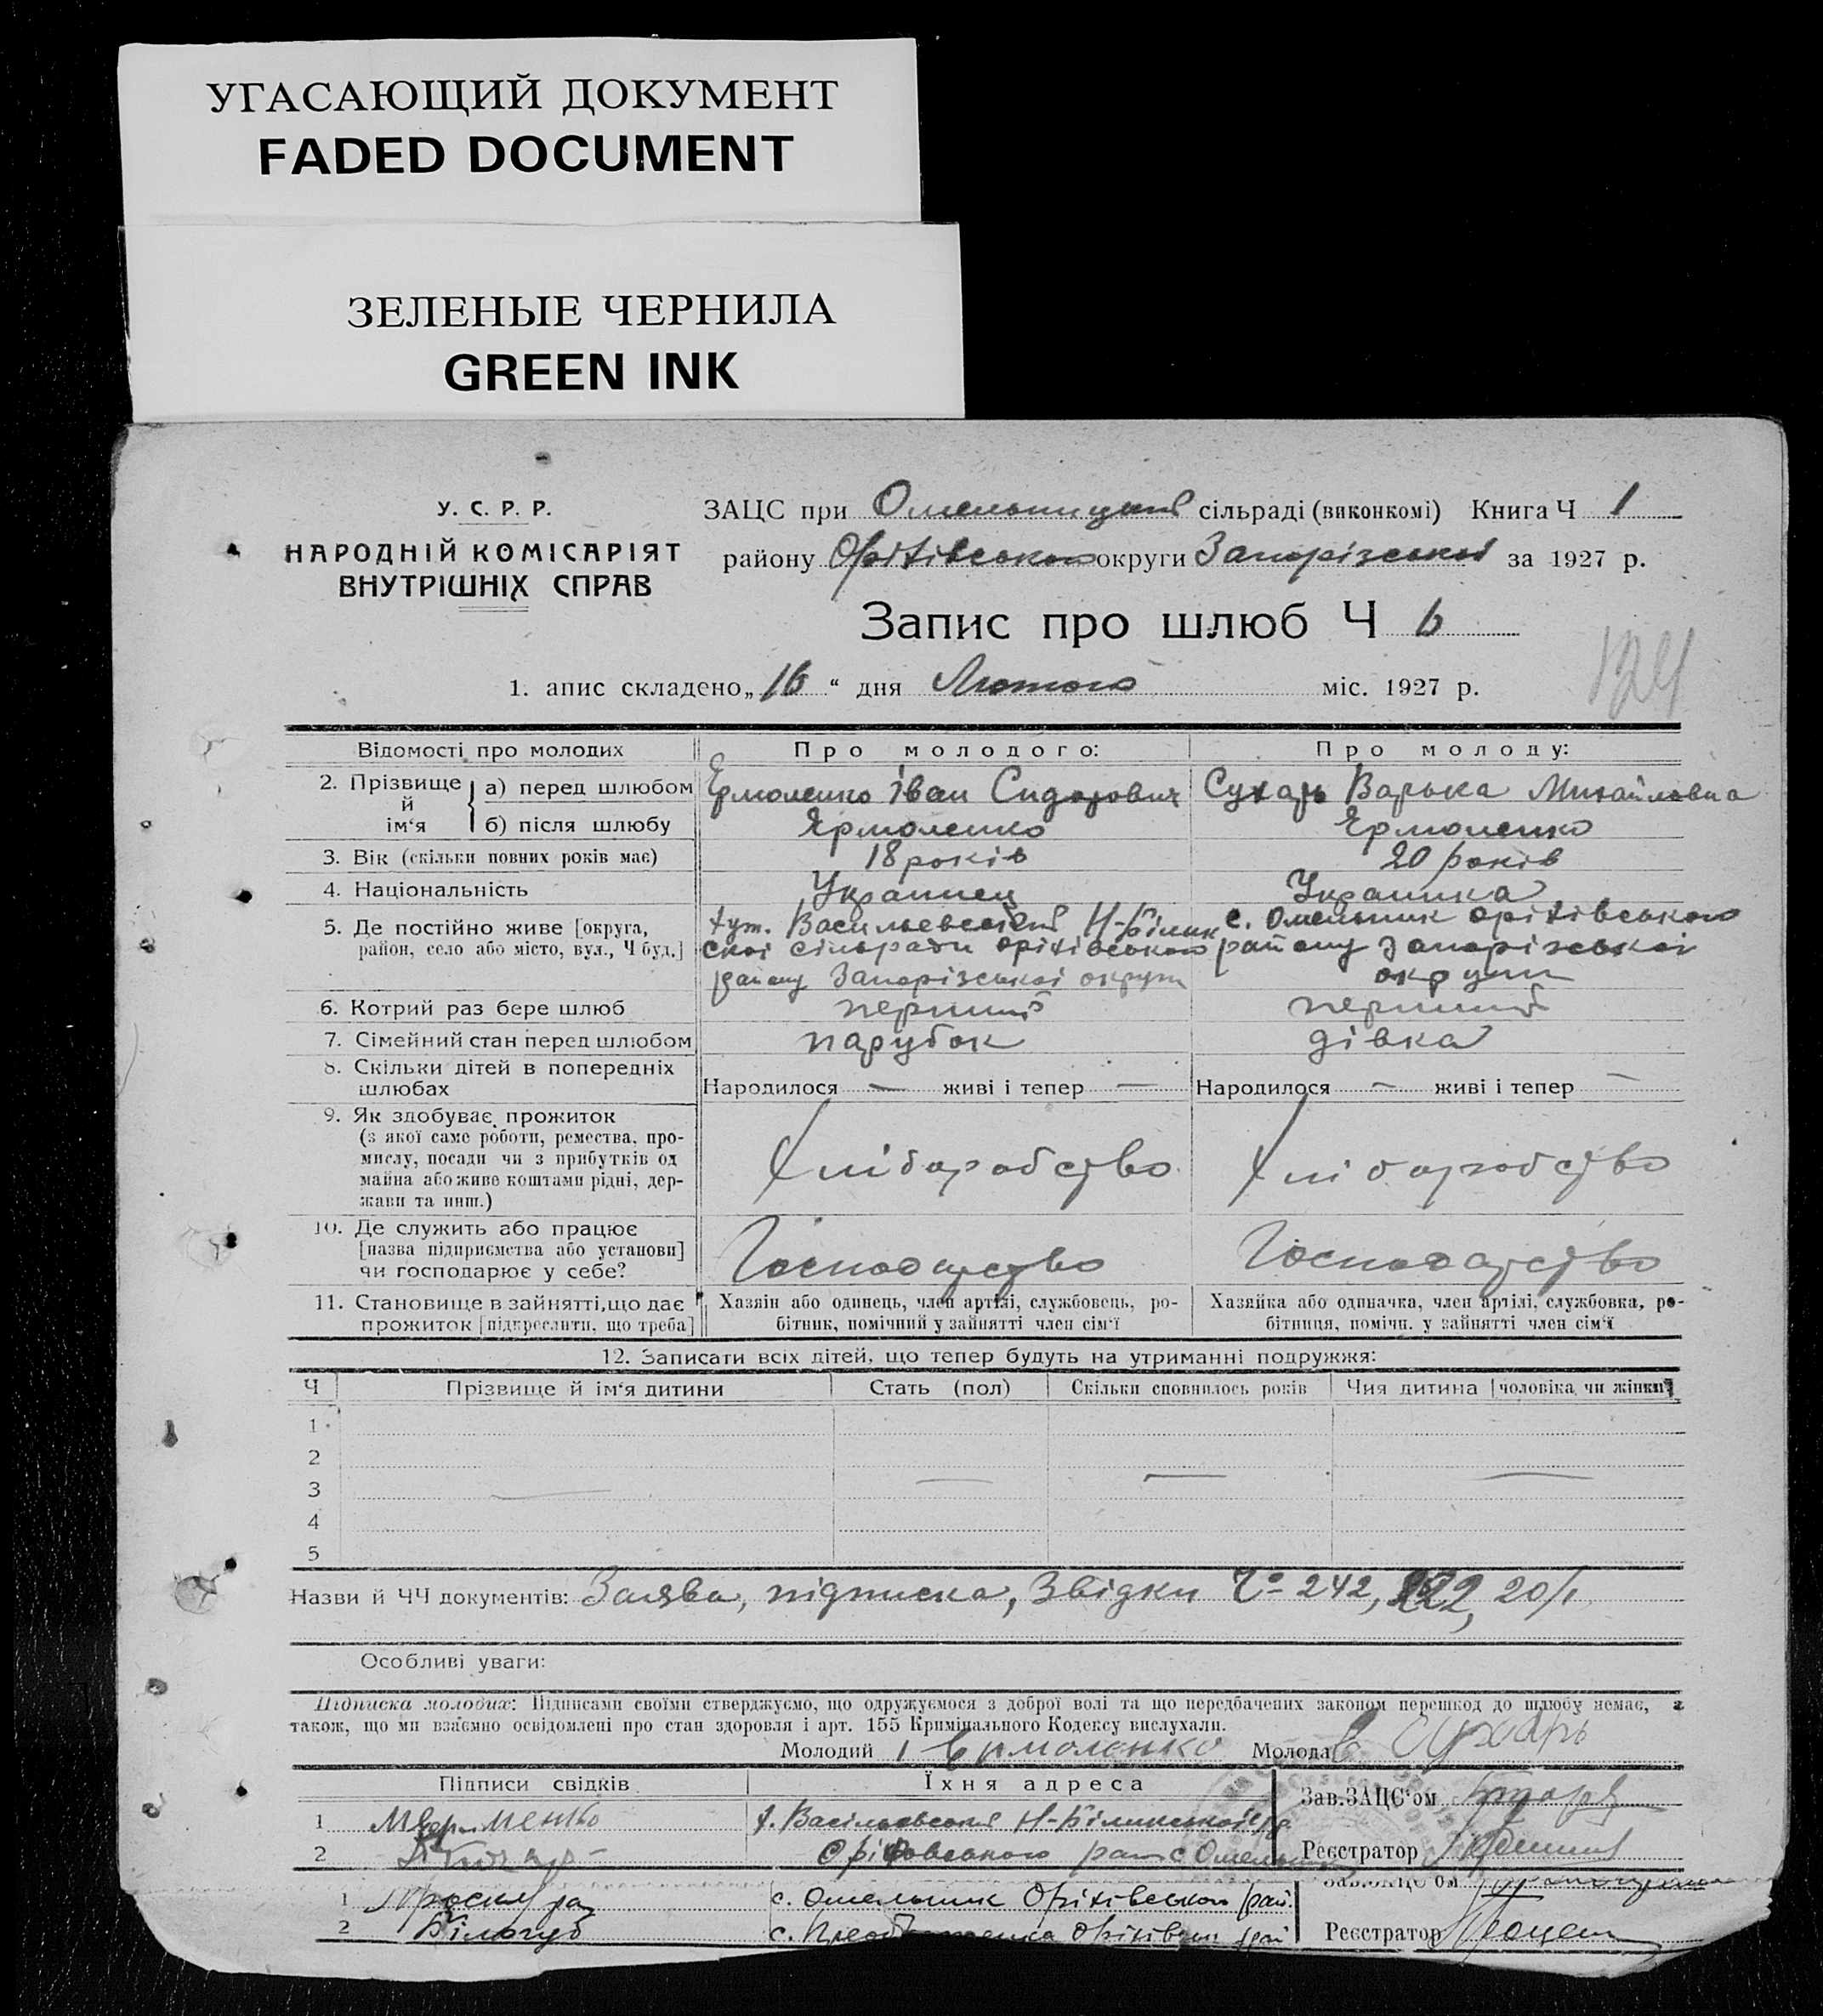 УГАСАЮЩИЙ ДОКУМЕНТ
FADED DOCUMENT
ЗЕЛЕНЫЕ ЧЕРНИЛА
GREEN INK
У. С. Р. Р.
НАРОДНІЙ КОМІСАРІЯТ
ВНУТРІШНІХ СПРАВ
ЗАЦС при Омельницькій сільраді (виконкомі) Книга Ч 1
району Оріхівського округи Запорізської за 1927 р.
Запис про шлюб Ч 6
124
1. апис складено „16“ дня Лютого міс. 1927 р.
Відомості про молодих Про молодого: Про молоду:
2. Прізвище й ім‘я
а) перед шлюбом Ермоленко Іван Сидорович Сухарь Варька Михайловна
б) після шлюбу Ярмоленко Ермоленко
3. Вік (скільки повних років має) 18 років 20 років
4. Національність Украинец Украинка
5. Де постійно живе [округа, район, село або місто, вул., Ч буд.]
хут. Васильевський Н-Білик
скої сільради оріхівського
району Запорізської округи
с. Омельник оріхівського
району Запорізської
округи
6. Котрий раз бере шлюб перший перший
7. Сімейний стан перед шлюбом парубок дівка
8. Скільки дітей в попередніх шлюбах
Народилося — живі і тепер — Народилося — живі і тепер —
9. Як здобуває прожиток
(з якої саме роботи, ремества, про-
мислу, посади чи з прибутків од
майна або живе коштами рідні, дер-
жави та инш.)
Хліборобство Хліборобство
10. Де служить або працює
[назва підприємства або установи]
чи господарює у себе?
Господарство Господарство
11. Становище в зайнятті, що дає
прожиток [підкреслити, що треба]
Хазяїн або одинець, член артілі, службовець, ро-
бітник, помічний у зайнятті член сім‘ї
Хазяйка або одиначка, член артілі, службовка, ро-
бітниця, помічн. у зайнятті член сім‘ї
12. Записати всіх дітей, що тепер будуть на утриманні подружжя:
Ч Прізвище й ім‘я дитини Стать (пол) Скільки сповнилось років Чия дитина [чоловіка чи жінки]
1
2
3 — — — —
4
5
Назви й ЧЧ документів: Заява, підписка, Звідки Ч° 242, 222, 20/1
Особливі уваги:
Підписка молодих: Підписами своїми стверджуємо, що одружуємося з доброї волі та що передбачених законом перешкод до шлюбу немає, а
також, що ми взаємно освідомлені про стан здоровля і арт. 155 Кримінального Кодексу вислухали.
Молодий І Ермоленко Молода В Сухарь
Підписи свідків Їхня адреса Зав. ЗАЦС‘ом
1 х. Васільовський Н-Білинської с/р
2 Оріховського рай с Омельник Реєстратор
1 с. Омельник Оріхівського рай. Зав. ЗАЦС‘ом
2 Білогуб с. Оріхівськ рай Реєстратор